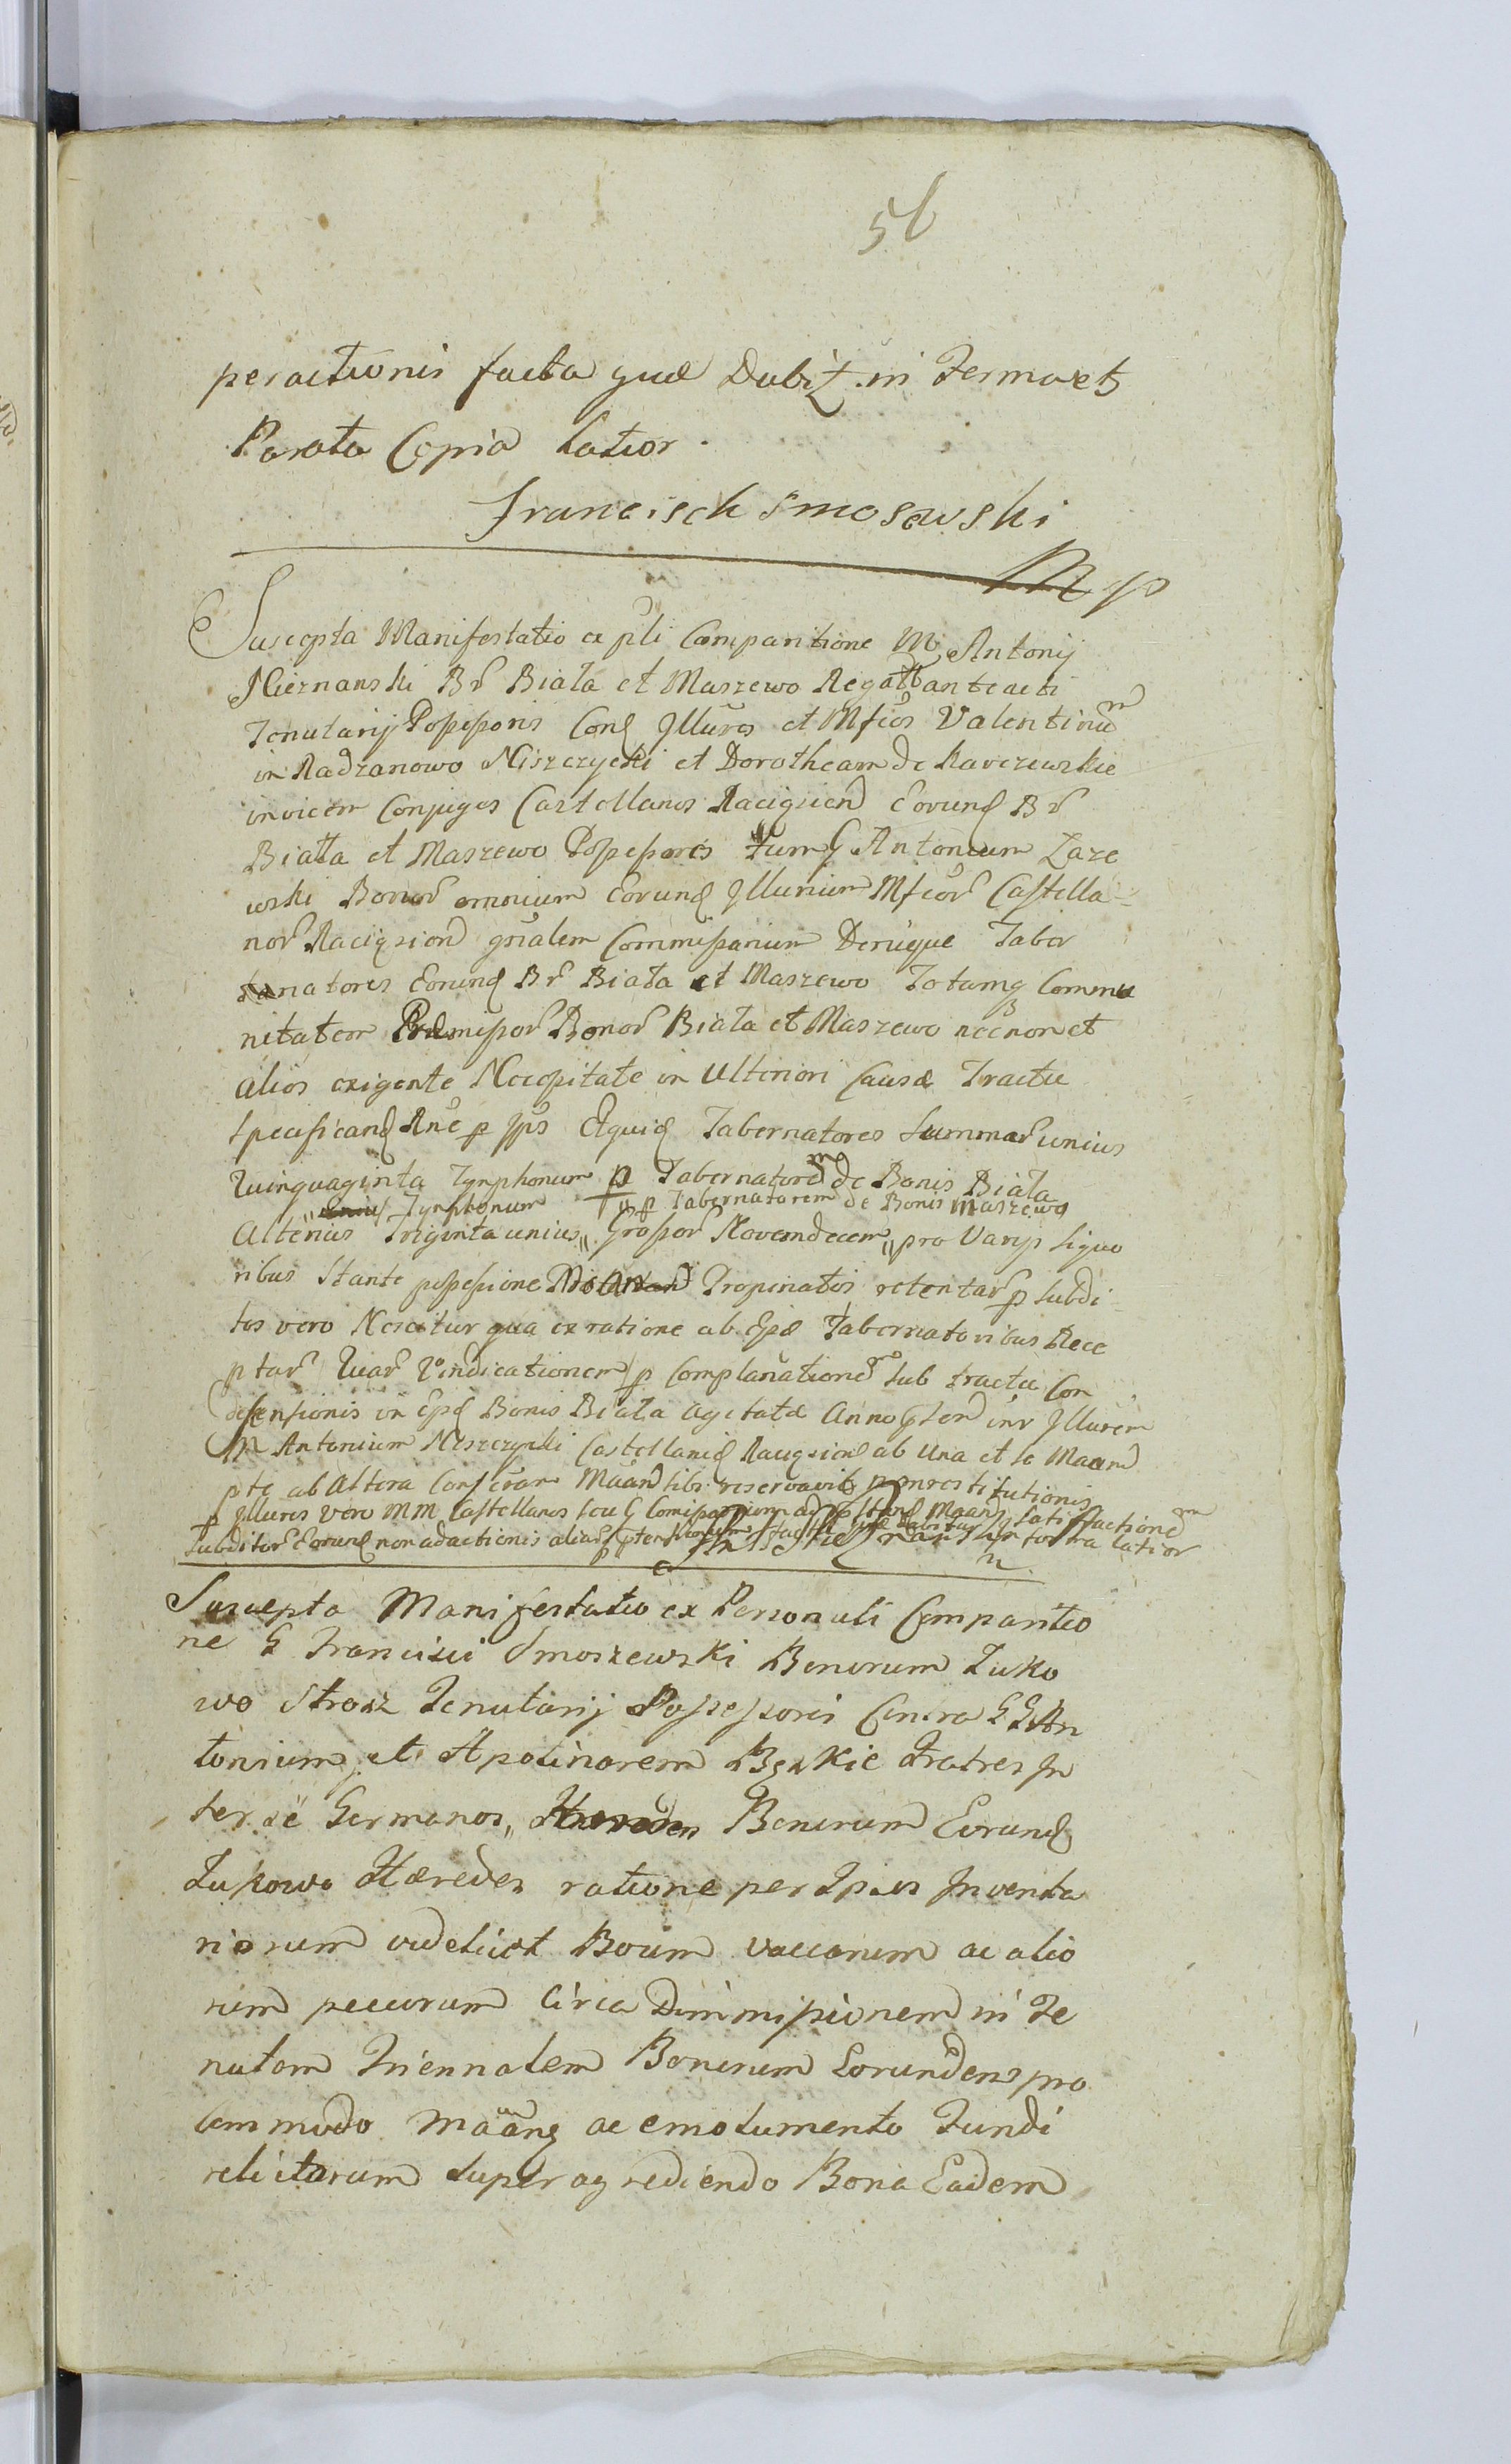 56
peractionis facta quæ Dabit. in Forma et
Parata Copia latior.
Francisck Smosewski
Mp
Suscepta Manifestatio ex pli Comparitione M. Antonij
Nieznanski Br Biała et Maszewo Rega anteacti
Tenutarij Possessoris Conq Illures et Mficos Valentinum
in Radzanowo Niszczycki et Dorotheam de Karczewskie
invicem Conjuges Castellanos Raciąsien Eorunq Br
Biała et Maszewo Possessores tum G Antonium Zaze
wski Bonor omnium Eorunq Illurium Mficor Castella-
nor Raciąsien gnalem Commissarium Denique Taber
natores Eorunq Br Biała et Maszewo Totamq Commu
nitatem Præmissor Bonor Biała et Maszewo necnon et
alios exigente Necessitate in Ulteriori Causæ Tractu
specificanq Rne p Ipos Tabernatores Summar unius
Quinquaginta Tynphonum p Tabernatorem de Bonis Biała
Tynphonum p Tabernatorem de Bonis Maszewo
Alterius Triginta unius,, Grossor Novemdecem,, pro Varijs liquo
ribus Stante possessione Propinatios retentar p Subdi
tos vero Nescitur qua ex ratione ab Tabernatoribus Rece
ptar Quar Vindicationem p Complanationem sub tractu Con
descensionis in Bonis Biała agitatæ Anno inr Illurem
M Antonium Niszczycki Castellanuq Raciąsien ab Una et se Maan
pte ab Altera Maan sibi reservavit restitutionis
p Illures vero MM Castellanos seu G Comissarium Maan satisfactionem
Subditor Eorunq non adactionis alias factæ quæ Dabitur latior
Suscepta Manifestatio ex Personali Comparitio
ne G Francisci Smoszewski Bonorum Łuko
wo Strosz Tenutarij Possessoris Contra GG An
tonium et Apolinarem Bąkie Fratres In
ter se Germanos,, Bonorum Eorunq
Łukowo Hæredes ratione per Ipsos Inventa
riorum videlicet Boum vaccarum ac alio
rum pecorum Circa Dimmissionem in Te
nutam Triennalem Bonorum Eorundem pro
Commodo Maanq ac emolumento Fundi
relictarum super agrediendo Bona Eadem